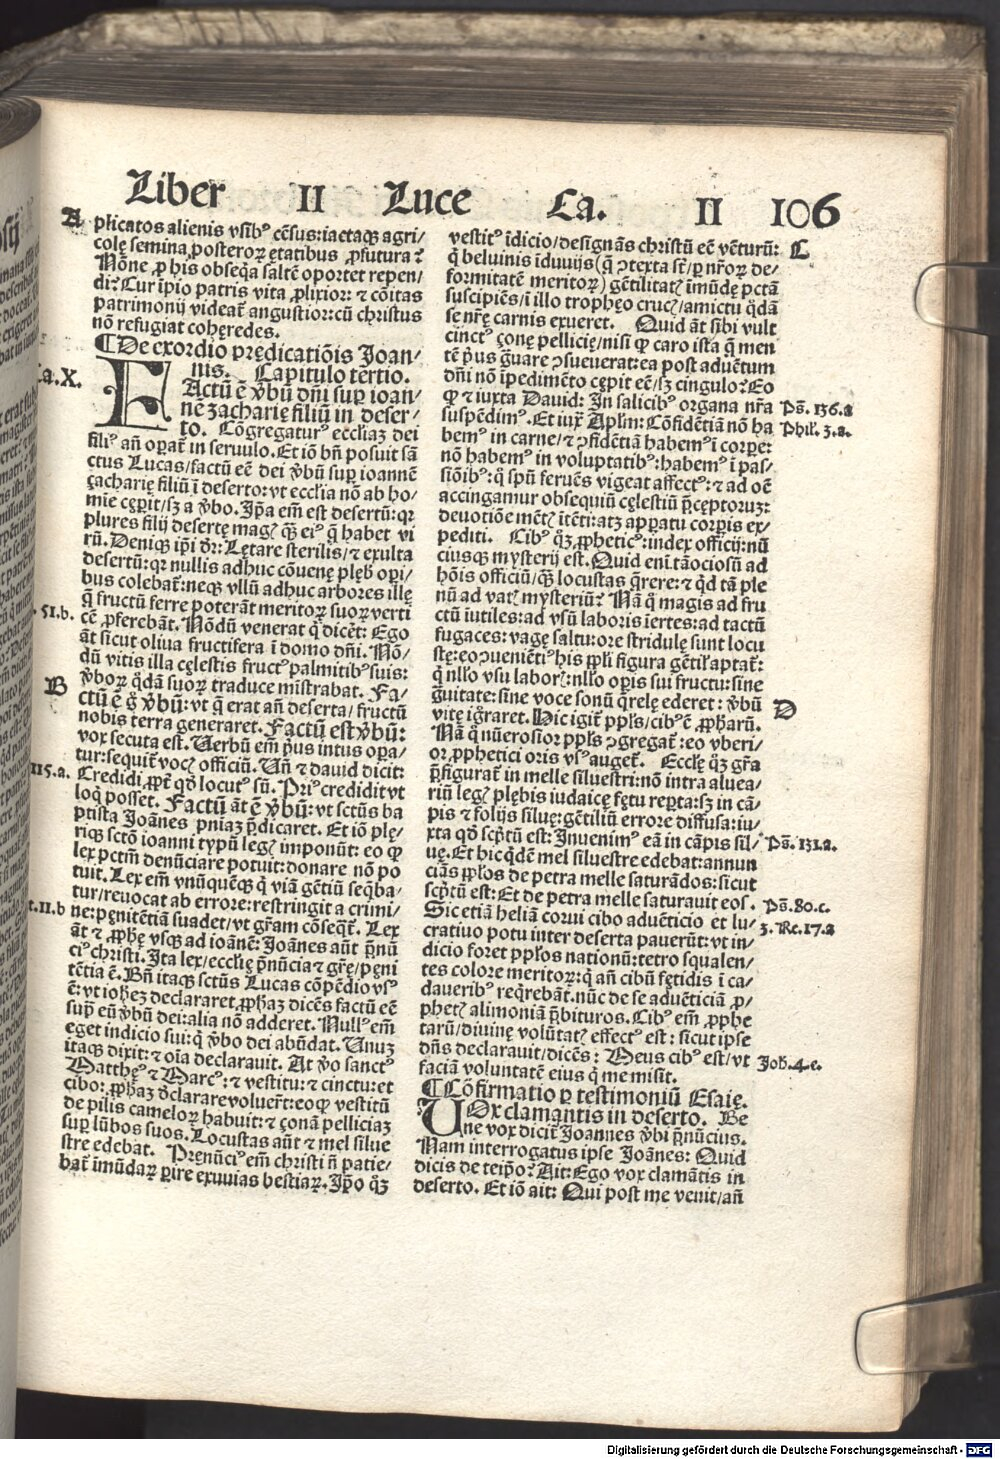 Liber II Luce Ca. II 106
A
plicatos alienis vsibꝰ cẽsus: iactaqꝫ agri/
colę semina posteroꝝ ętatibus ꝓfutura?
Nõne ꝓ his obseq̃a saltẽ oportet repen/
di? Cur ĩpio patris vita ꝓlixior: ⁊ cõitas
patrimonij videat̃ angustior: cũ christus
nõ refugiat cohęredes.
¶De exordio prędicatiõis Joan/
nis. Capitulo tertio.
Ca.X.
FActũ ẽ ṽbũ dñi suꝑ ioan/
nẽ zacharię filiũ in deser/
to. Cõgregaturꝰ eccliaꝫ dei
filiꝰ añ oꝑat̃ in seruulo. Et iõ bñ posuit sã
ctus Lucas/ factũ eẽ dei ṽbũ suꝑ ioannẽ
çacharię filiũ ĩ deserto: vt ecclia nõ ab ho/
mie cẹpit/ sꝫ a ṽbo. Jp̃a em̃ est desertũ: qꝛ
plures filij desertę magꝭ q̃ꝫ eiꝰ q̃ habet vi
rũ. Deniqꝫ ip̃i dr̃: Lętare sterilis/ ⁊ exulta
desertũ: qꝛ nullis adhuc cõuenę plęb̃ opi/
bus colebat̃: neqꝫ vllũ adhuc arbores illę
51.b.
q̃ fructũ ferre poterãt meritoꝝ suoꝝ verti
cẽ ꝓferebãt. Nõdũ venerat q̃ dicẽt: Ego
ãt sicut oliua fructifera ĩ domo dñi. Nõ/
dũ vitis illa cęlestis fructꝰ palmitibꝰ suis:
B
ṽboꝝ q̃dã suoꝝ traduce mistrabat. Fa/
ctũ ẽ g̃ ṽbũ: vt q̃ erat añ deserta/ fructũ
nobis terra generaret. Factũ est ṽbũ:
vox secuta est. Uerbũ em̃ p̃us intus oꝑa/
tur: sequit̃ vocꝭ officiũ. Uñ ⁊ dauid dicit:
115.a.
Credidi ꝓpt̃ qd̃ locutꝰ sũ. Priꝰ credidit vt
loq̃ posset. Factũ ãt ẽ ṽbũ: vt sctũs ba
ptista Joãnes pniaꝫ p̃dicaret. Et iõ plę/
riqꝫ sctõ ioanni typũ legꝭ imponũt: eo ꝙ
lex pctm̃ denũciare potuit: donare nõ po
tuit. Lex em̃ vnũquẽqꝫ q̃ viã gẽtiũ seq̃ba/
tur/ reuocat ab errore: restringit a crimi/
t.11.b
ne: pęnitẽtiã suadet/ vt gr̃am cõseq̃t̃. Lex
ãt ⁊ ꝓphę vsqꝫ ad ioãnẽ: Joãnes aũt p̃nũ
ciꝰ christi. Jta lex/ ecclię p̃nũcia ⁊ gr̃ę/ pęni
tẽtia ẽ. Bñ itaqꝫ sctũs Lucas cõpẽdio vsꝰ
ẽ: vt iohẽꝫ declararet ꝓphaꝫ dicẽs factũ eẽ
suꝑ eũ ṽbũ dei: alia nõ adderet. Nullꝰ em̃
eget indicio sui: q̃ ṽbo dei abũdat. Unuꝫ
itaqꝫ dixit: ⁊ oĩa declarauit. At ṽo sanctꝰ
Matthęꝰ ⁊ Marcꝰ: ⁊ vestitu: ⁊ cinctu: et
cibo: ꝓphaꝫ declarare voluer̃t: eo ꝙ vestitũ
de pilis cameloꝝ habuit: ⁊ çonã pelliciaꝫ
suꝑ lũbos suos. Locustas aũt ⁊ mel silue
stre edebat. Pręnũciꝰ em̃ christi ñ patie/
bat̃ imũdaꝝ ꝑire exuuias bestiaꝝ. Jp̃o q̃ꝫ
C
vestitꝰ ĩdicio/ designãs christũ eẽ vẽturũ:
q̃ beluinis ĩduuijs (q̃ ꝯtexta st̃/ ꝑ nr̃oꝝ de/
formitatẽ meritoꝝ) gẽtilitatꝭ imũdę pctã
suscipiẽs/ ĩ illo trophęo crucꝭ/ amictu q̃dã
se nr̃ę carnis exueret. Quid ãt sibi vult
cinctꝰ çonę pellicię/ nisi ꝙ caro ista q̃ men
tẽ p̃us g̃uare ꝯsueuerat: ea post aduẽtum
dñi nõ ĩpedimẽto cẹpit eẽ/ sꝫ cingulo? Eo
ꝙ ⁊ iuxta Dauid: Jn salicibꝰ organa nr̃a
Ps̃. 136.a
suspẽdimꝰ. Et iux̃ Aplm̃: Cõfidẽtiã nõ ha
Phil. 3.a.
bemꝰ in carne/ ⁊ ꝯfidẽtiã habemꝰ ĩ corꝑe:
nõ habemꝰ in voluptatibꝰ: habemꝰ ĩ pas/
siõibꝰ: q̃ sp̃u feruẽs vigeat affectꝰ: ⁊ ad oẽ
accingamur obsequiũ cęlestiũ p̃ceptoruꝫ:
deuotiõe mẽtꝭ ĩtẽti: atꝫ apꝑatu corꝑis ex/
pediti. Cibꝰ q̃ꝫ ꝓpheticꝰ: index officij: nũ
ciusqꝫ mysterij est. Quid eni tãociosũ ad
hõis officiũ/ q̃ꝫ locustas q̃rere: ⁊ q̃d tã ple
nũ ad vatꝭ mysteriũ? Nã q̃ magis ad fru
ctũ iutiles: ad vsũ laboris iertes: ad tactũ
fugaces: vagę saltu: ore stridulę sunt locu
stę: eo ꝯueniẽtiꝰ his ppl̃i figura gẽtil̃ aptat̃:
q̃ nllo vsu laborꝭ: nllo oꝑis sui fructu: sine
g̃uitate: sine voce sonũ q̃relę ederet: ṽbũ
D
vitę igr̃aret. Hic igit̃ ppl̃s/ cibꝰ ẽ ꝓphaꝝ.
Nã q̃ nũerosior ppl̃s ꝯgregat̃: eo vberi/
or ꝓphetici oris vsꝰ auget̃. Ecclę q̃ꝫ gr̃a
p̃figurat̃ in melle siluestri: nõ intra aluea/
riũ legꝭ plębis iudaicę fętu reꝑta: sꝫ in cã/
pis ⁊ folijs siluę: gẽtiliũ errore diffusa: iu/
xta qd̃ scptũ est: Jnuenimꝰ eã in cãpis sil/
Ps̃. 131.a.
uę. Et hic q̃dẽ mel siluestre edebat: annun
ciãs ppl̃os de petra melle saturãdos: sicut
scptũ est: Et de petra melle saturauit eos.
Ps̃. 80.c.
Sic etiã heliã corui cibo aduẽticio et lu/
3. Re. 17.a
cratiuo potu inter deserta pauerũt: vt in/
dicio foret ppl̃os nationũ: tetro squalen/
tes colore meritoꝝ: q̃ añ cibũ fętidis ĩ ca/
daueribꝰ req̃rebãt. nũc de se aduẽticiã ꝓ/
phetꝭ alimoniã p̃bituros. Cibꝰ em̃ ꝓphe
tarũ/ diuinę volũtatꝭ effectꝰ est: sicut ipse
dñs declarauit/ dicẽs: Meus cibꝰ est/ vt
Joh. 4.e.
faciã voluntatẽ eius q̃ me misit.
¶Cõfirmatio ꝑ testimoniũ Esaię.
UOx clamantis in deserto. Be
ne vox dicit̃ Joannes ṽbi p̃nũcius.
Nam interrogatus ipse Joãnes: Quid
dicis de teip̃o? Ait: Ego vox clamãtis in
deserto. Et iõ ait: Qui post me venit/ añ
Digitalisierung gefördert durch die Deutsche Forschungsgemeinschaft - DFG